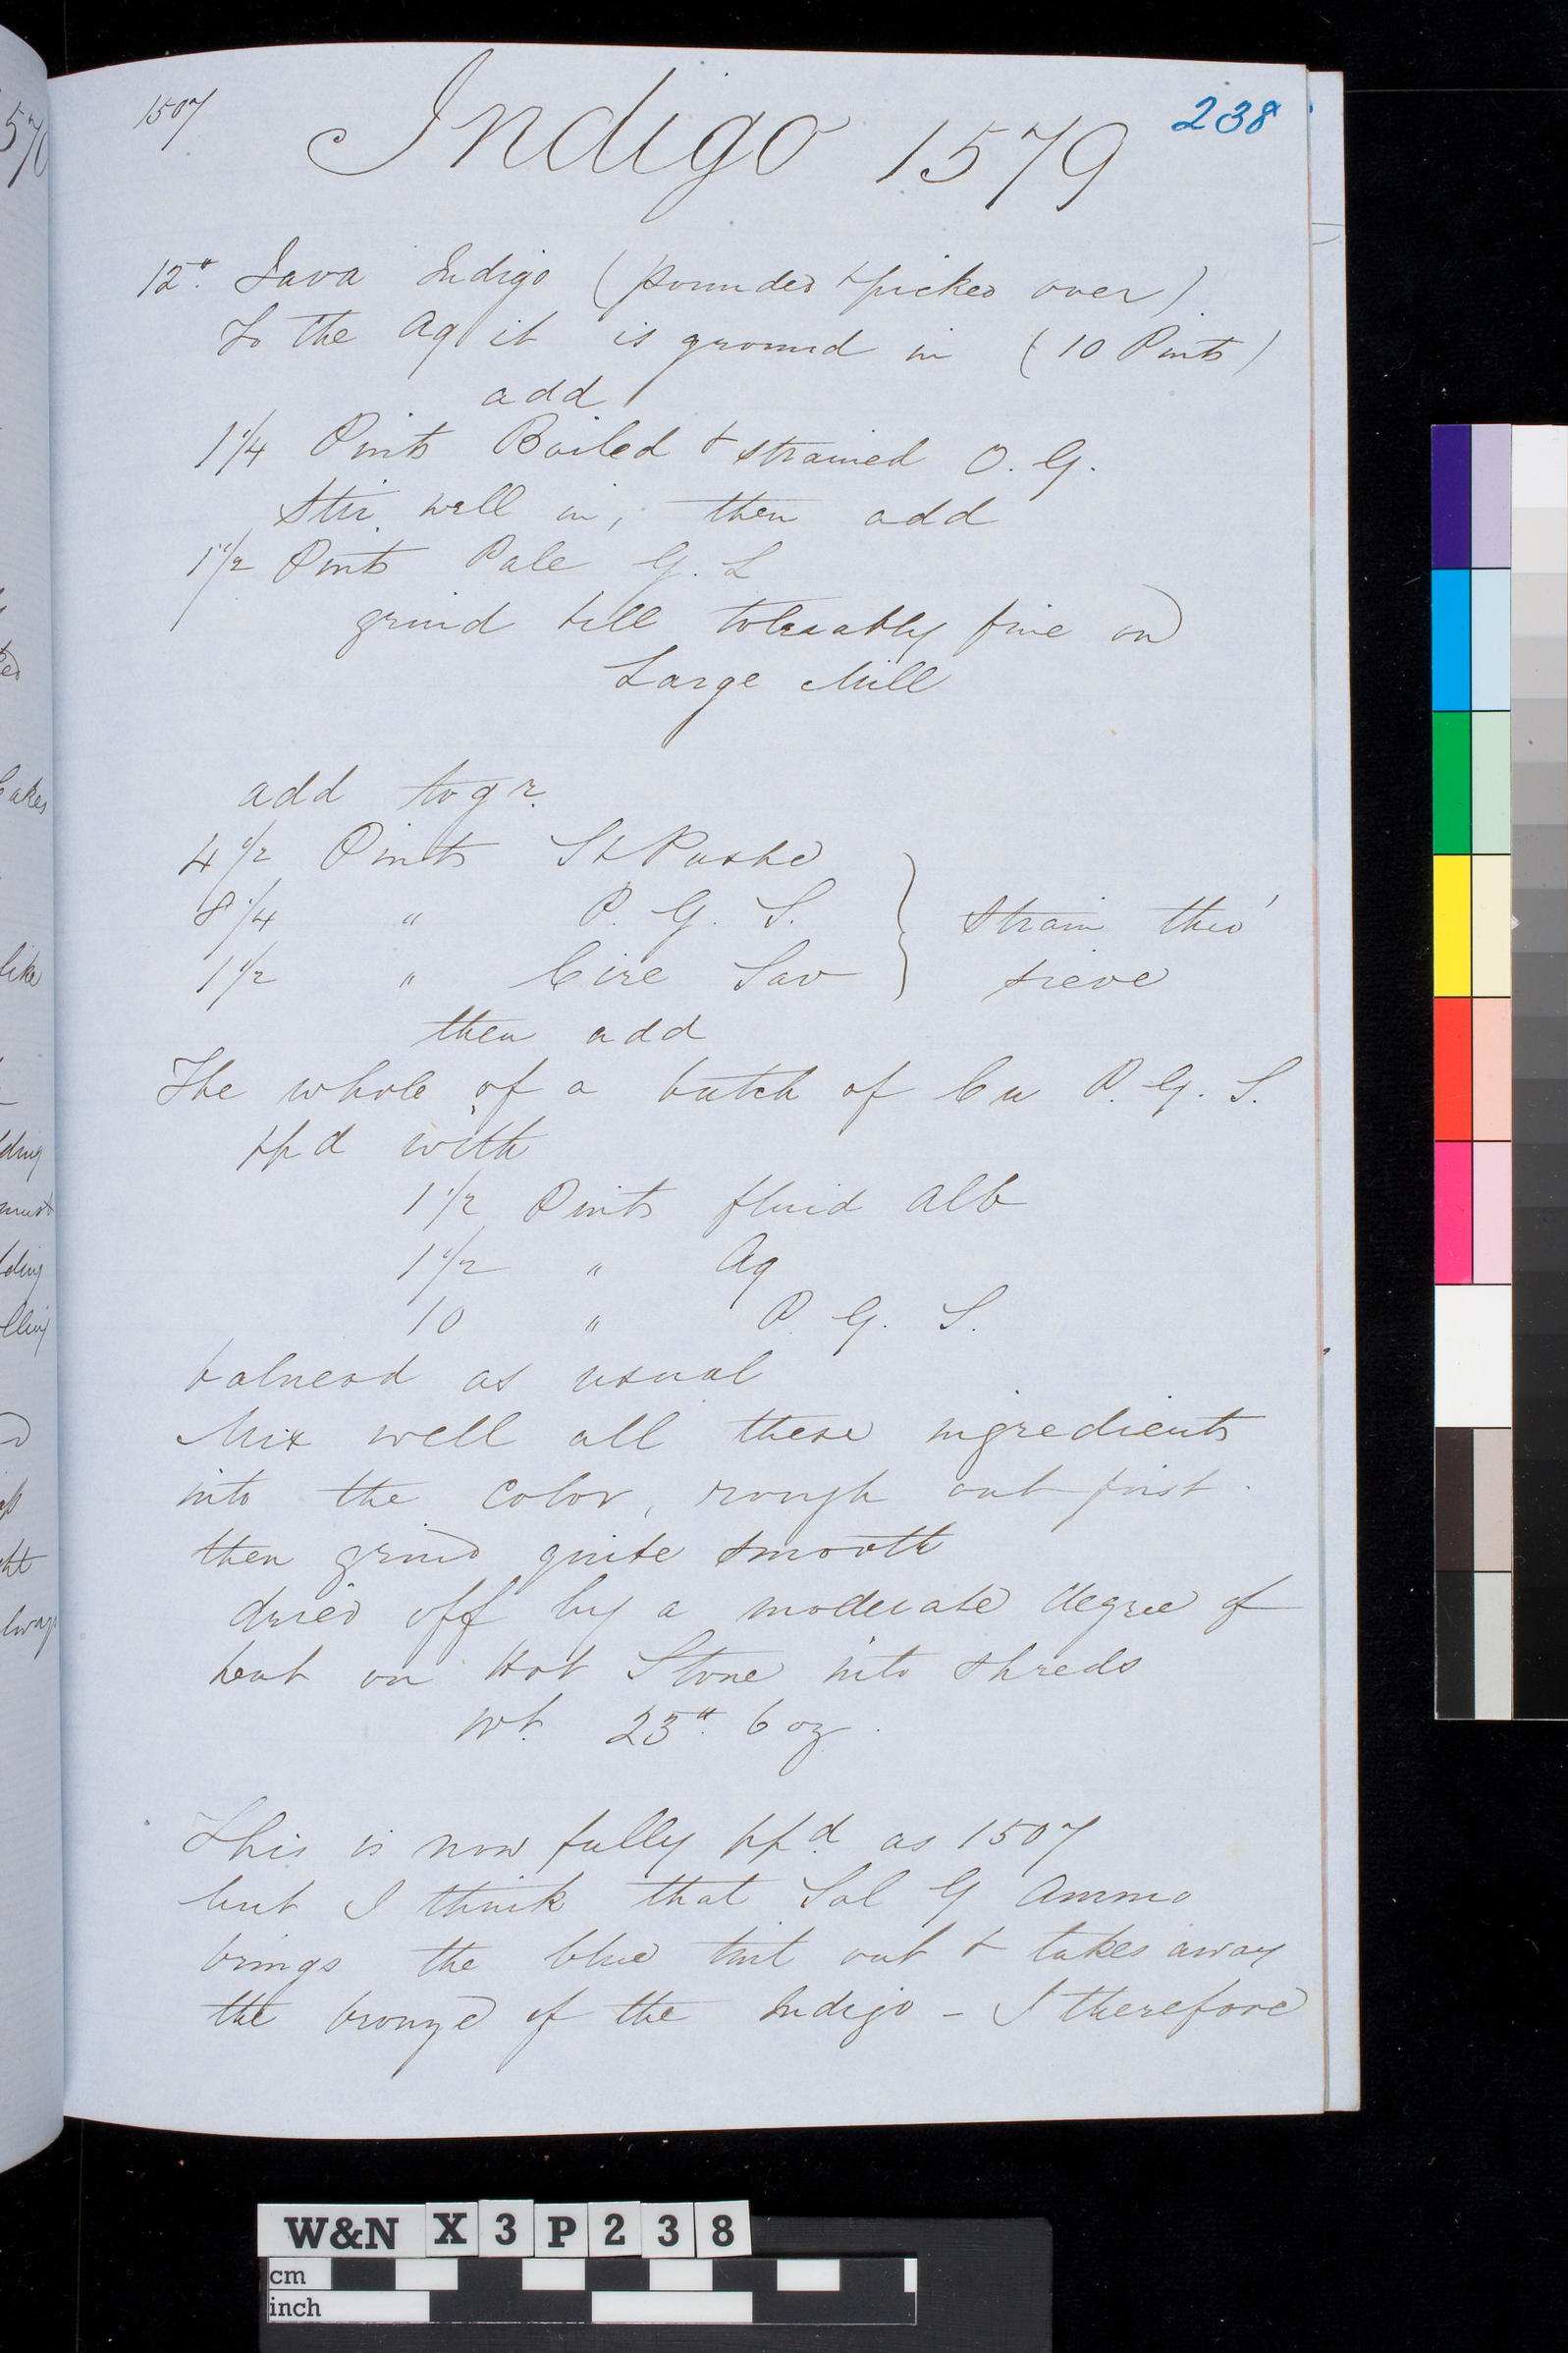 1507
Indigo 1579
238
12". Java Indigo (pounded & picked over)
To the Aq it is ground in (10 Pints)
add
1 1/4 Pints Boiled & strained O. G.
Stir well in, then add
1 1/2 Pints Pale G. S
grind till tolerably fine on
Large Mill
add togr.
4 1/2 Pints St Paste
8 1/4 " P. G. S.
1 1/2 " Cire Sav
strain thro'
sieve
then add
The whole of a batch of Cu P. G. S.
ppd with
1 1/2 Pints fluid Alb
1 1/2 " Aq
10 " P. G. S.
balnead as usual
Mix well all these ingredients
into the color, rough out first.
then grind quite smooth
dried off by a moderate degree of
heat on Hot Stone into shreds
wt. 23". 6 oz.
This is now fully ppd. as 1507
but I think that Sol G Ammo
brings the blue tint out & takes away
the bronze of the Indigo - I therefore
570
Cakes
like
ding
must
ding
lling
ht
lways
W&N X 3 P 2 3 8
cm
inch